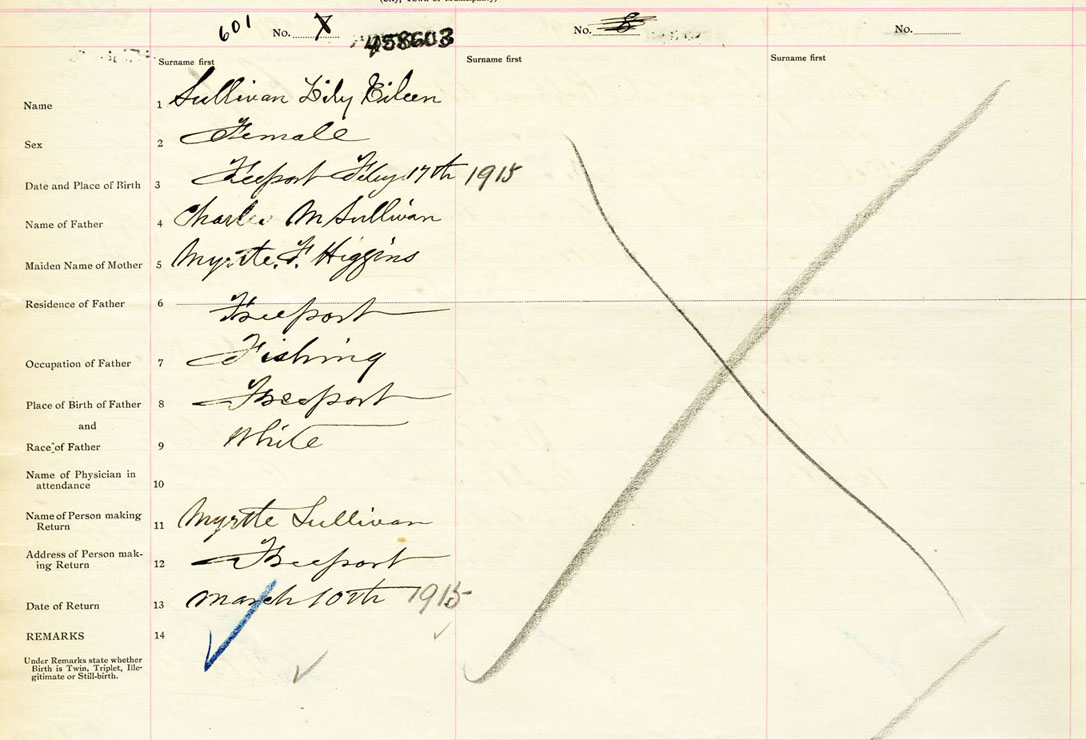 (City, Town or Municipality)
601 No. 458603 No. 8 No.
Surname first Surname first Surname first
Name 1 Sullivan Lily Eileen
Sex 2 Female
Date and Place of Birth 3 Freeport Feby. 17th 1915
Name of Father 4 Charles M Sullivan
Maiden Name of Mother 5 Myrtle F. Higgins
Residence of Father 6
Freeport
Occupation of Father 7 Fishing
Place of Birth of Father 8 Freeport
and
Race of Father 9 White
Name of Physician in
attendance 10
Name of Person making
Return 11 Myrtle Sullivan
Address of Person mak-
ing Return 12 Freeport
Date of Return 13 March 10th 1915
REMARKS 14
Under Remarks state whether
Birth is Twin, Triplet, Ille-
gitimate or Still-birth.